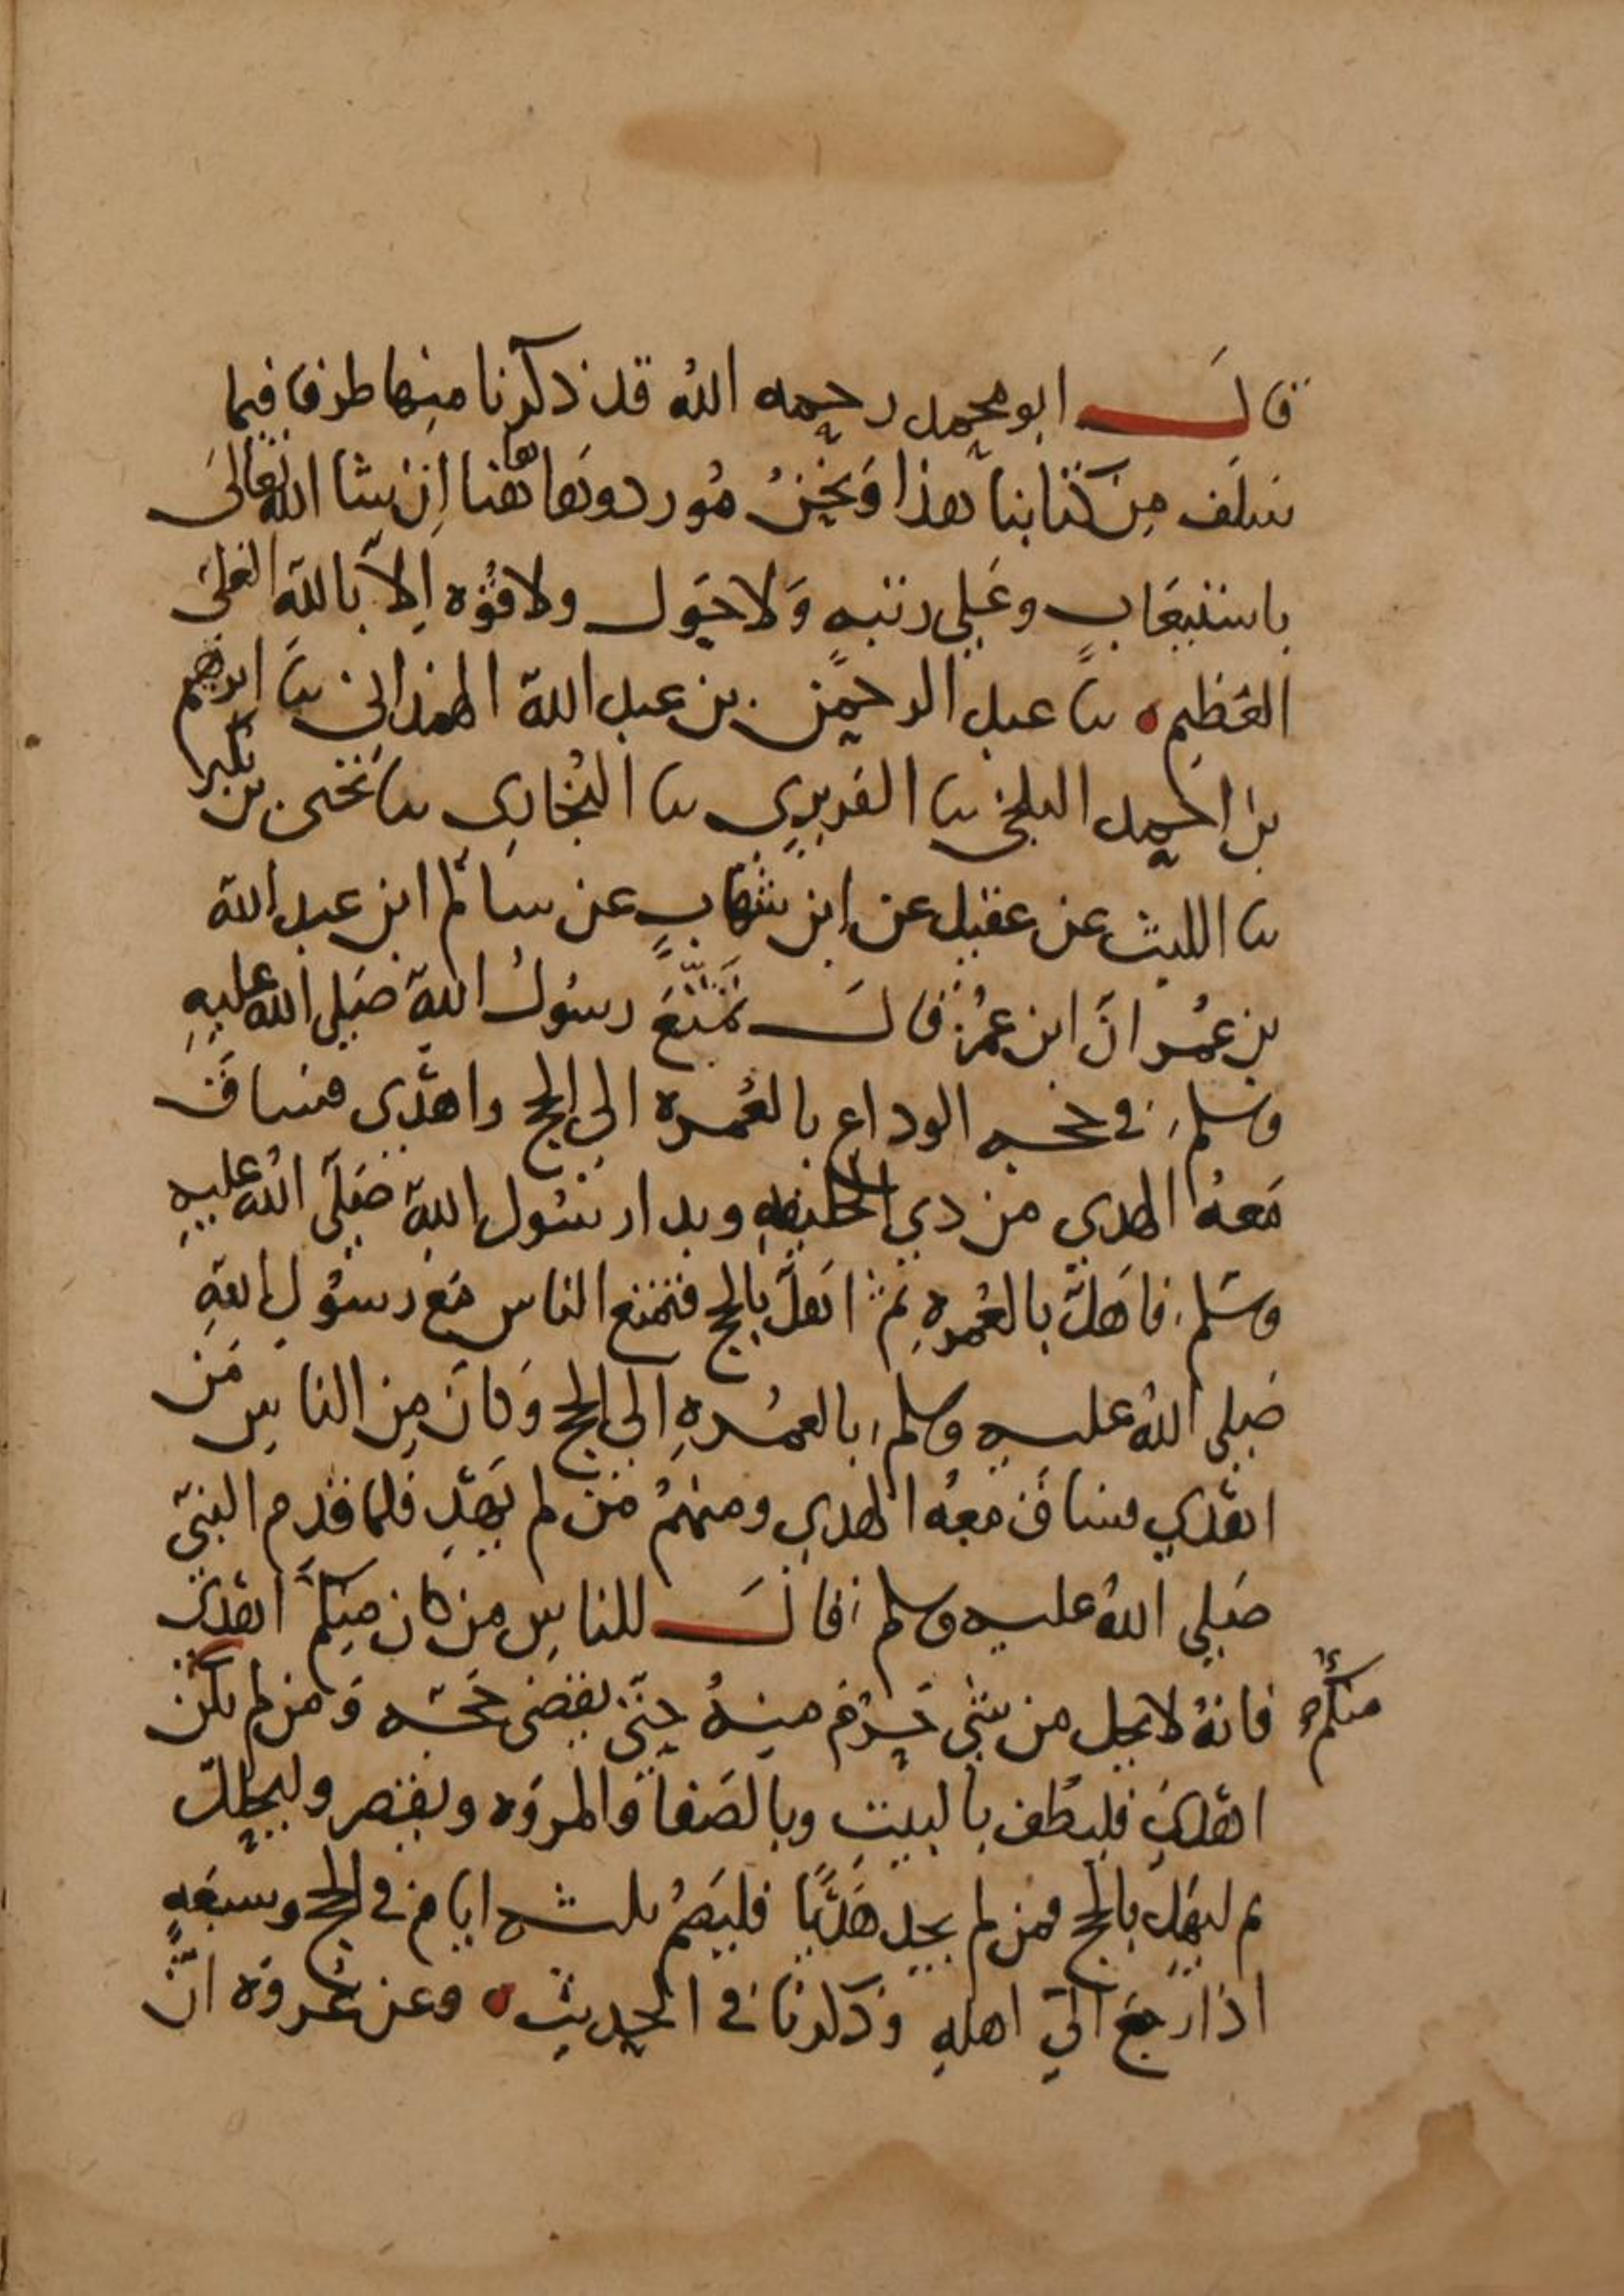 قال ابو محمد رحمه الله قد ذكرنا منها طرفا فيما
سلف من كتابنا هذا ونحن موردوها هاهنا إن شا الله تعالى
باستيعاب وعلى رتبه ولا حول ولا قوه إلا بالله العلى
العظيم ثنا عبد الرحمن بن عبد الله الهمذاني ثنا ابرهيم
بن احمد البلخي ثنا الفربري ثنا البخاري ثنا يحيى بن بكير
ثنا الليث عن عقيل عن ابن شهاب عن سالم ابن عبد الله
بن عمر ان ابن عمر قال تمتع رسول الله صلى الله عليه
وسلم في حجه الوداع بالعمره الى الحج واهدى فساق
معه الهدي من ذي الحليفه وبدا رسول الله صلى الله عليه
وسلم فاهل بالعمره ثم اهل بالحج فتمتع الناس مع رسول الله
صلى الله عليه وسلم بالعمره الى الحج وكان من الناس من
اهدي فساق معه الهدي ومنهم من لم يهد فلما قدم النبي
صلى الله عليه وسلم قال للناس من كان منكم اهدى
فانه لا يحل من شي حرم منه حتى يقضى حجه ومن لم يكن
منكم
اهدى فليطف بالبيت وبالصفا والمروه ويقصر وليحلل
ثم ليهل بالحج فمن لم يجد هديا فليصم ثلثه ايام في الحج وسبعه
اذا رجع الى اهله وذكرنا في الحديث وعن عروه ان